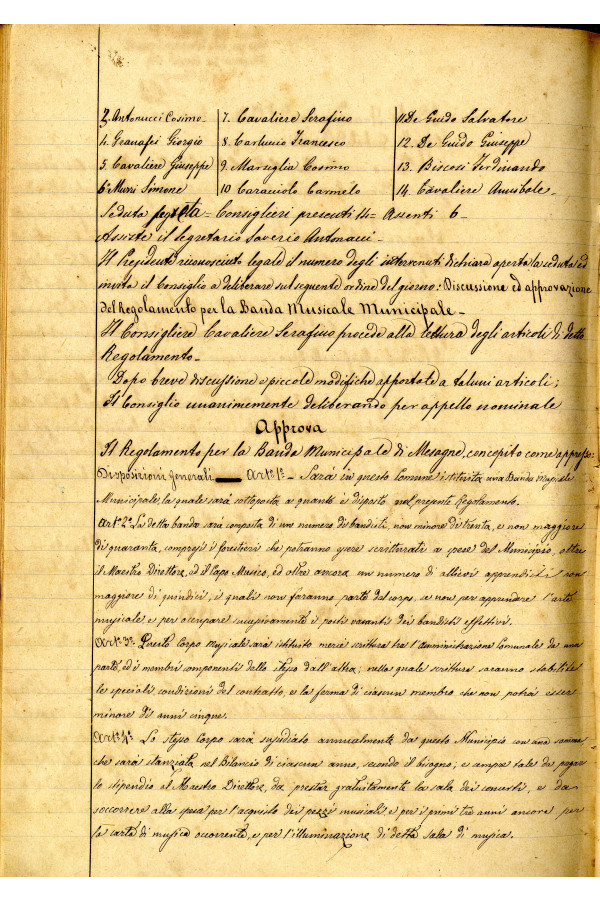 3. Antonucci Cosimo 7. Cavaliere Serafino 11 De Guido Salvatore
4. Granafei Giorgio 8. Carluccio Francesco 12. De Guido Giuseppe
5. Cavaliere Giuseppe 9. Marseglia Cosimo 13. Biscosi Ferdinando
6° Murri Simone 10 Caraciolo Carmelo 14. Cavaliere Annibale
Seduta segreta = Consiglieri presenti 14 = Assenti 6 -
Assiste il Segretario Saverio Antonaci -
Il Presidente riconosciuto legale il numero degli intervenuti dichiara aperta la seduta ed
invita il Consiglio a deliberare sul seguente ordine del giorno: Discussione ed approvazione
del Regolamento per la Banda Musicale Municipale -
Il Consigliere Cavaliere Serafino procede alla lettura degli articoli di detto
Regolamento -
Dopo breve discussione e piccole modifiche apportate a taluni articoli;
Il Consiglio unanimemente deliberando per appello nominale
Approva
Il Regolamento per la Banda Municipale di Mesagne, concepito come appresso:
Disposizioni generali — Art° 1° - Sarà in questo Comune istituita una Banda Musicale
Municipale, la quale sarà sottoposta a quanto è disposto nel presente Regolamento.
Art° 2° La detta banda sarà composta di un numero di bandisti, non minore di trenta, e non maggiore
di quaranta, compresi i forestieri che potranno essere scritturati a spese del Municipio, oltre
il Maestro Direttore, ed il Capo Musico, ed oltre ancora un numero di allievi apprendisti non
maggiore di quindici, i quali non faranno parte del corpo, se non per apprendere l'arte
musicale e per occupare successivamente i posti vacanti dei bandisti effettivi.
Art° 3° Questo Corpo musicale sarà istituito mercè scrittura tra l'Amministrazione Comunale da una
parte, ed i membri componenti dello stesso dall'altra; nella quale scrittura saranno stabilite
le speciali condizioni del contratto, e la ferma di ciascun membro che non potrà esser
minore di anni cinque.
Art° 4° Lo stesso Corpo sarà sussidiato annualmente da questo Municipio con una somma
che sarà stanziata nel Bilancio di ciascun anno, secondo il bisogno; e sempre tale da pagare
lo stipendio al Maestro Direttore, da prestar gratuitamente la sala dei concerti, e da
soccorrere alla spesa per l'acquisto dei pezzi musicali e per i primi tre anni ancora per
la carta di musica occorrente, e per l'illuminazione di detta sala di musica.